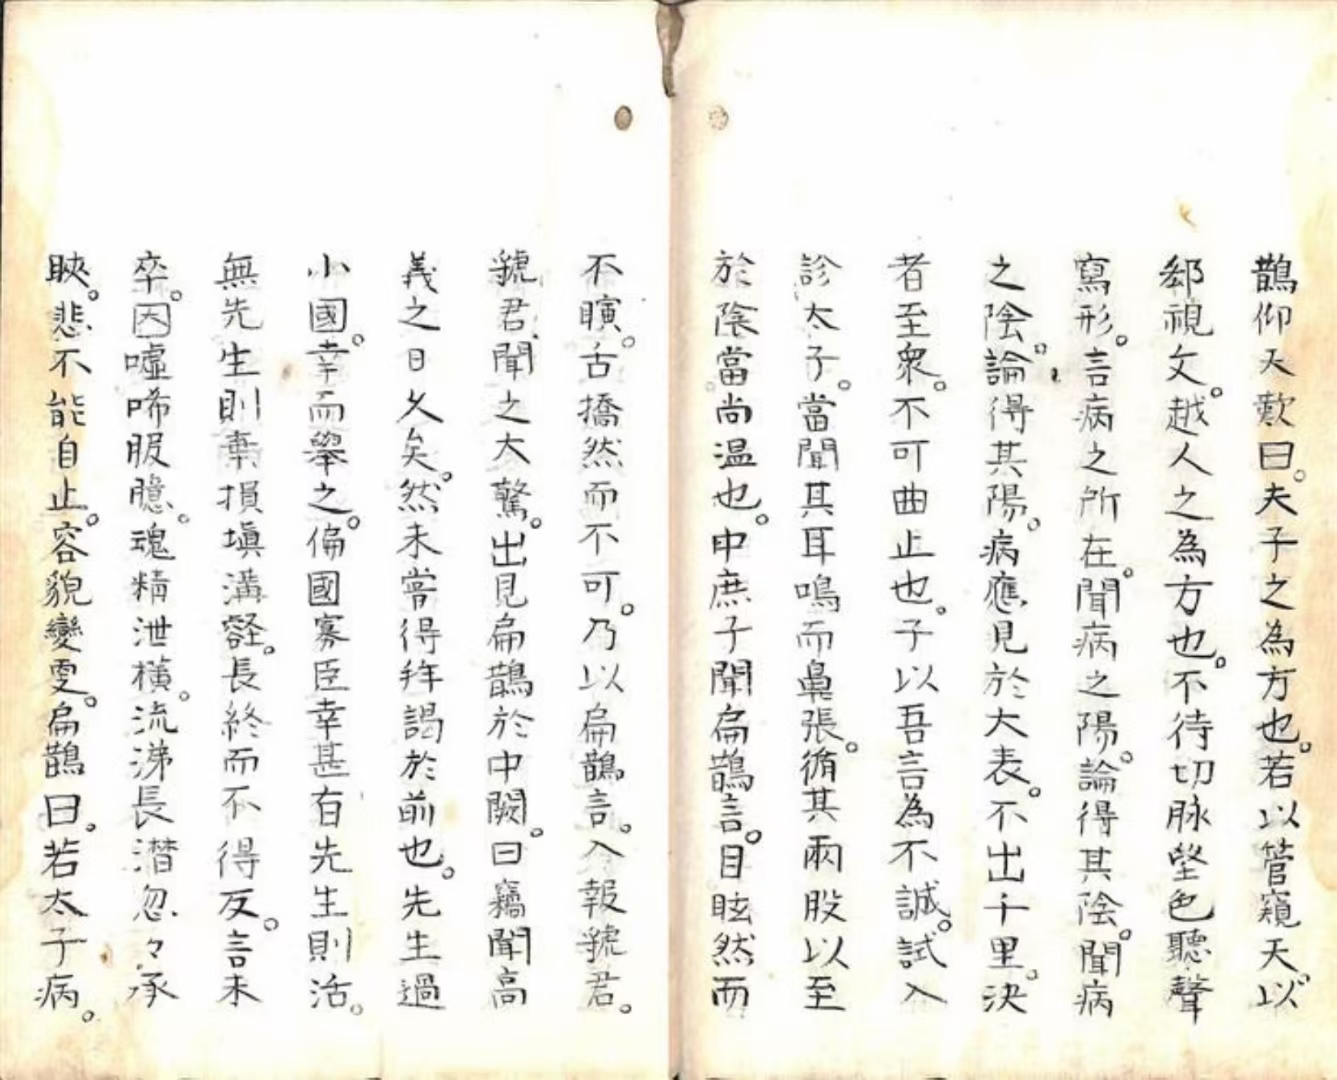 鵲仰天歎曰。夫子之為方也。若以管窺天。以
郄視文。越人之為方也。不待切脉望色聽聲
寫形。言病之所在。聞病之陽。論得其陰。聞病
之陰。論得其陽。病應見於大表。不出千里。決
者至衆。不可曲止也。子以吾言為不誠。試入
診太子。當聞其耳鳴而鼻張。循其兩股以至
於陰。當尚温也。中庶子聞扁鵲言。目眩然而
不瞚。舌撟然而不可。乃以扁鵲言。入報虢君。
虢君聞之大驚。出見扁鵲於中闕。曰竊聞高
義之日久矣。然未嘗得拜謁於前也。先生過
小國。幸而舉之。偏國寡臣幸甚有先生則活。
無先生則棄損塡溝壑。長終而不得反。言未
卒。因噓唏服臆。魂精泄橫。流涕長潛忽々承
䀹。悲不能自止。容貌變更。扁鵲曰。若太子病。